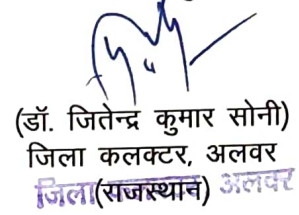 (डॉ. जितेन्द्र कुमार सोनी)
जिला कलक्टर, अलवर
जिला (राजस्थान) अलवर